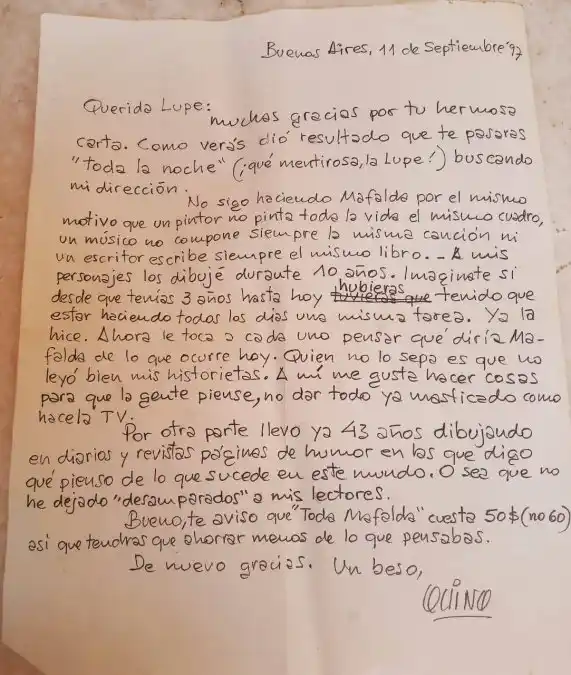 Buenos Aires, 11 de Septiembre'97
Querida Lupe:
muchas gracias por tu hermosa
carta. Como verás dió resultado que te pasaras
"toda la noche" (¡qué mentirosa, la Lupe!) buscando
mi dirección.
No sigo haciendo Mafalda por el mismo
motivo que un pintor no pinta toda la vida el mismo cuadro,
un músico no compone siempre la misma canción ni
un escritor escribe siempre el mismo libro._ A mis
personajes los dibujé durante 10 años. Imaginate si
desde que tenías 3 años hasta hoy hubieras tuvieras que tenido que
estar haciendo todos los días una misma tarea. Ya la
hice. Ahora le toca a cada uno pensar qué diría Ma-
falda de lo que ocurre hoy. Quien no lo sepa es que no
leyó bien mis historietas. A mí me gusta hacer cosas
para que la gente piense, no dar todo ya masticado como
hace la TV.
Por otra parte llevo ya 43 años dibujando
en diarios y revistas páginas de humor en las que digo
qué pienso de lo que sucede en este mundo. O sea que no
he dejado "desamparados" a mis lectores.
Bueno, te aviso que "Toda Mafalda" cuesta 50$ (no 60)
así que tendras que ahorrar menos de lo que pensabas.
De nuevo gracias. Un beso,
QUINO